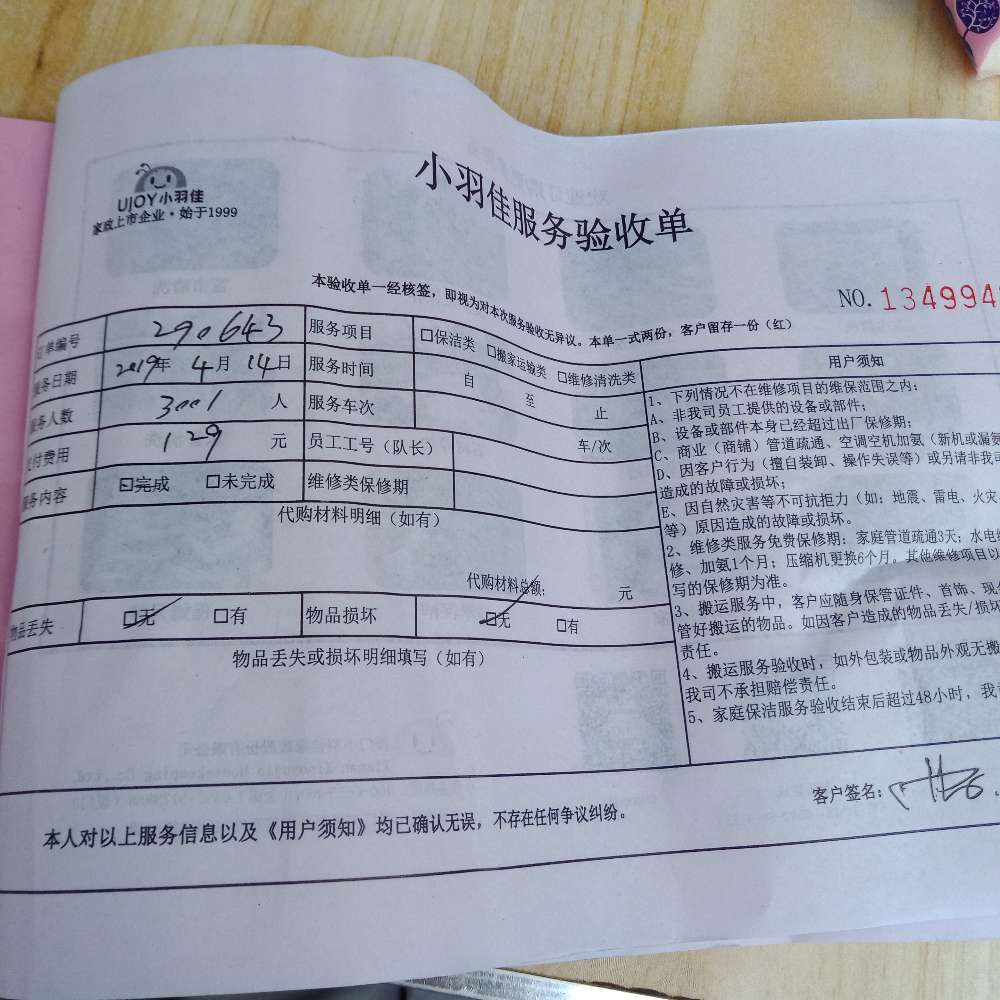 UJOY小羽佳
家政上市企业·始于1999
小羽佳服务验收单
NO. 1349948
本验收单一经核签，即视为对本次服务验收无异议。本单一式两份，客户留存一份（红）
订单编号 290643 服务项目 □保洁类 □搬家运输类 □维修清洗类
服务日期 2019年 4月 14日 服务时间 自 至 止
服务人数 3001 人 服务车次 车/次
应付费用 129 元 员工工号（队长）
服务内容 □完成 □未完成 维修类保修期
代购材料明细（如有）
代购材料总额： 元
物品丢失 □无 □有 物品损坏 □无 □有
物品丢失或损坏明细填写（如有）
用户须知
1、下列情况不在维修项目的维保范围之内：
A、非我司员工提供的设备或部件；
B、设备或部件本身已经超过出厂保修期；
C、商业（商铺）管道疏通、空调空机加氨（新机或漏氨
D、因客户行为（擅自装卸、操作失误等）或另请非我司
造成的故障或损坏；
E、因自然灾害等不可抗拒力（如：地震、雷电、火灾
等）原因造成的故障或损坏。
2、维修类服务免费保修期：家庭管道疏通3天；水电维
修、加氨1个月；压缩机更换6个月。其他维修项目以
写的保修期为准。
3、搬运服务中，客户应随身保管证件、首饰、现金
管好搬运的物品。如因客户造成的物品丢失/损坏
责任。
4、搬运服务验收时，如外包装或物品外观无搬
我司不承担赔偿责任。
5、家庭保洁服务验收结束后超过48小时，我
客户签名：
本人对以上服务信息以及《用户须知》均已确认无误，不存在任何争议纠纷。